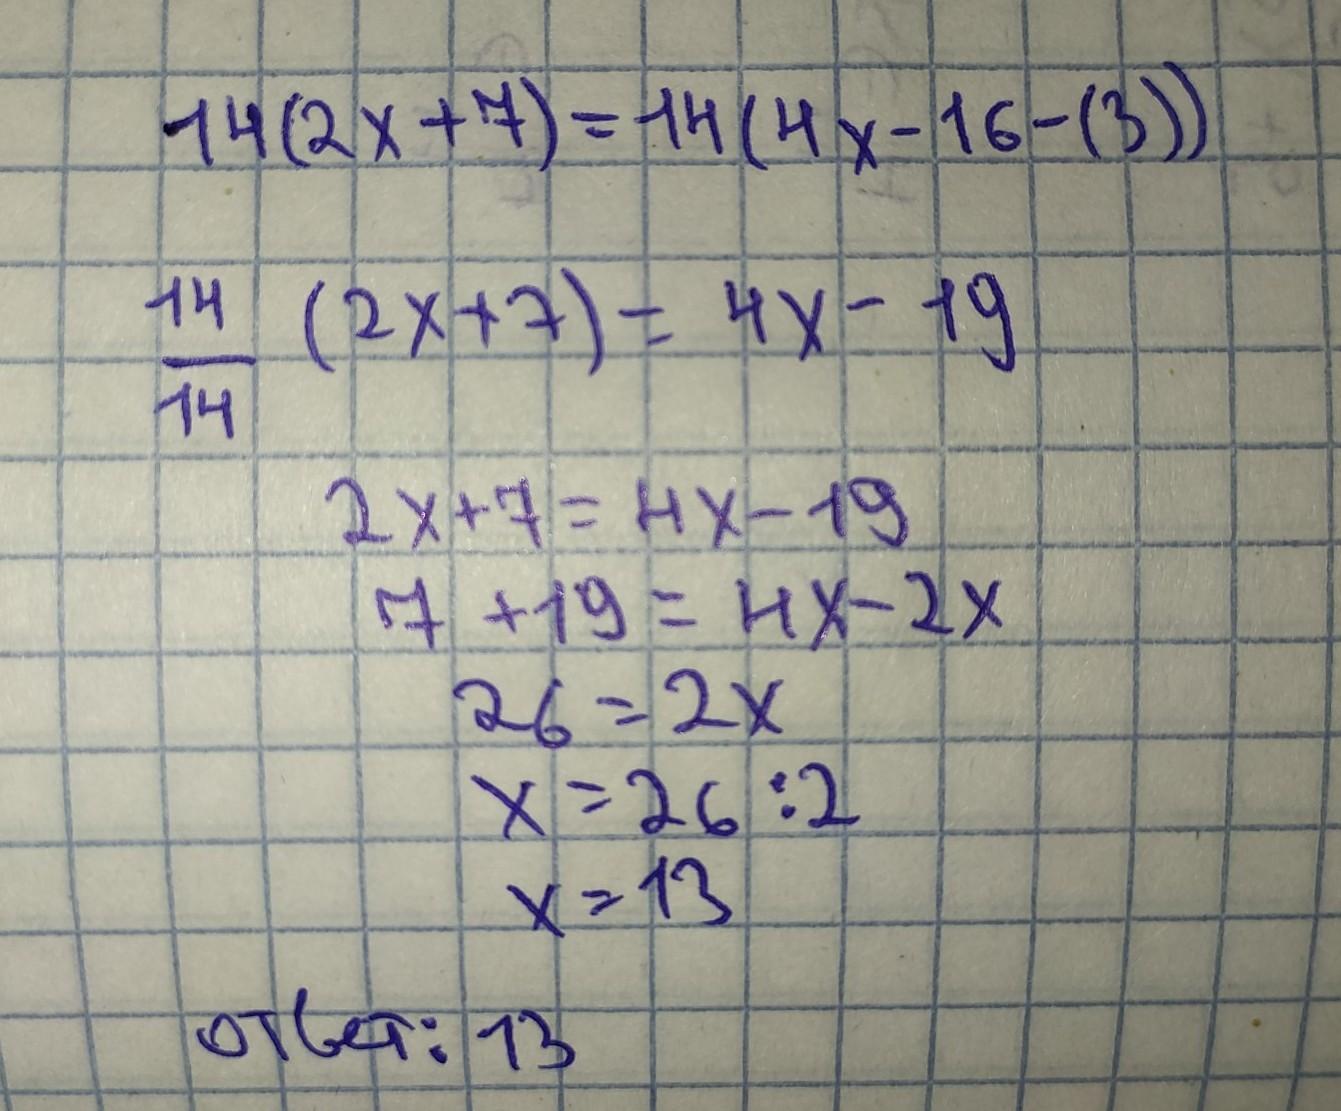 14(2x+7)=14(4x-16-(3))
14/14 (2x+7)=4x-19
2x+7=4x-19
7+19=4x-2x
26=2x
x=26:2
x=13
ответ: 13